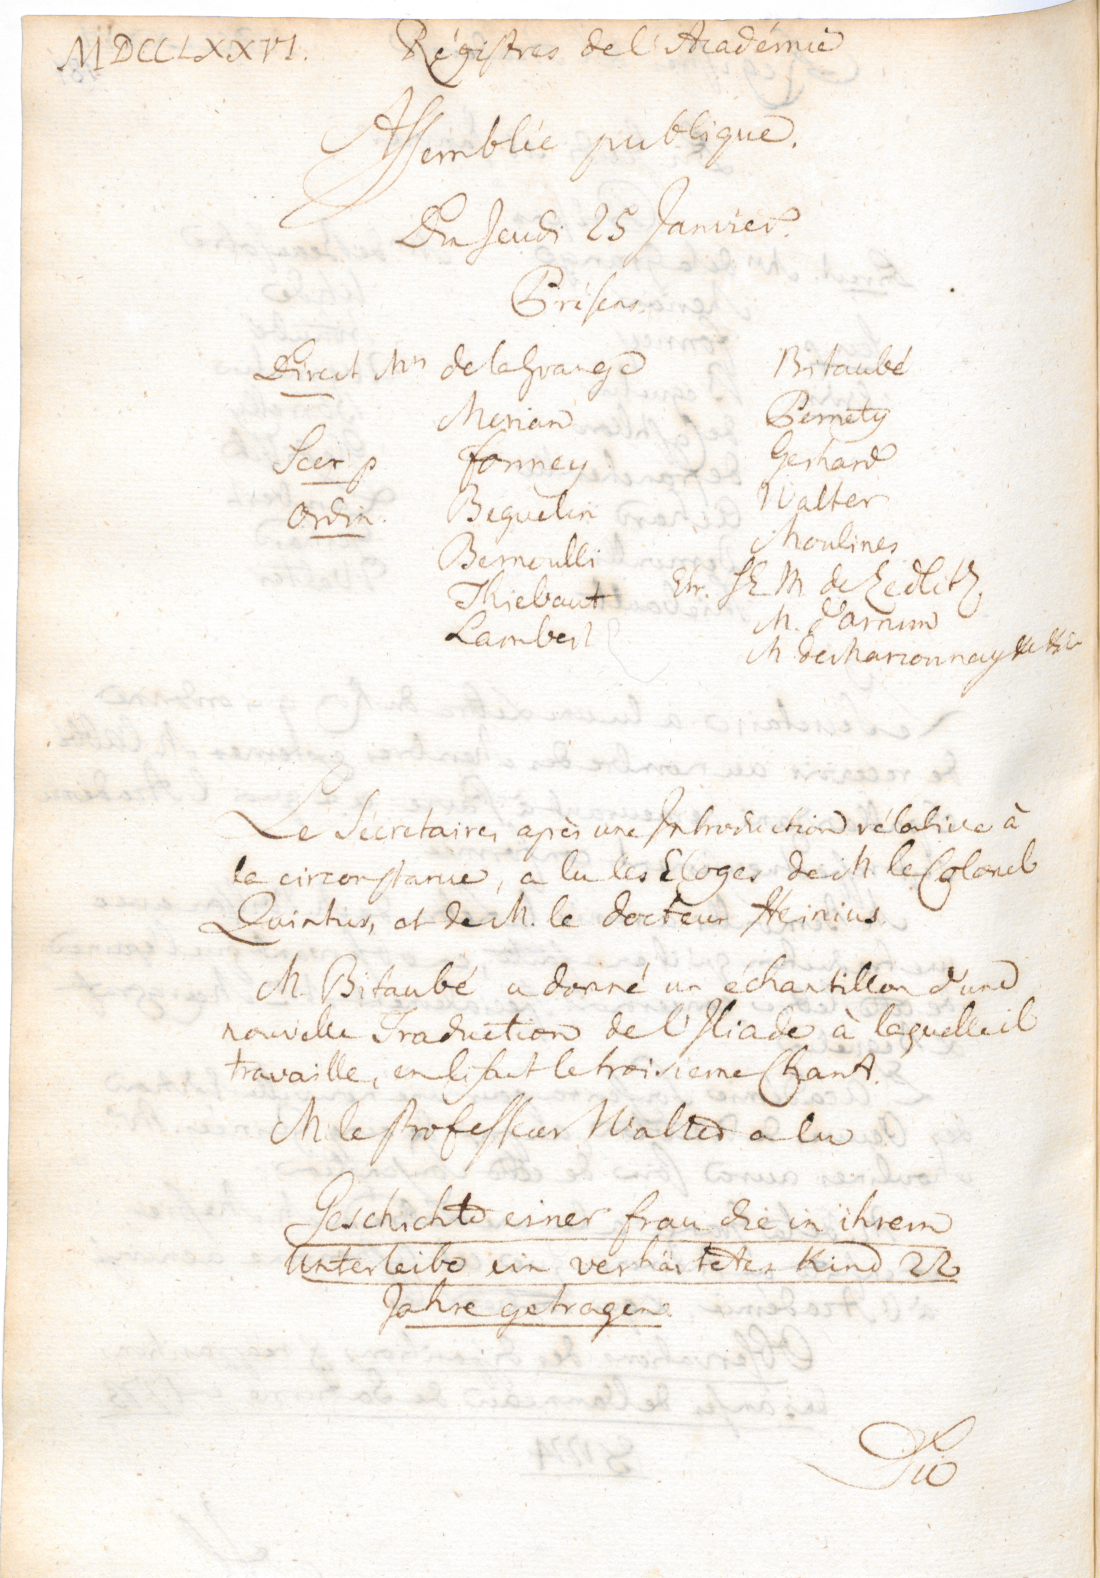 MDCCLXXVI. Régistres de l'Académie
Assemblée publique.
Du Jeudi 25 Janvier.
Présens.
Direct Mrs de la Grange
Merian
Secr. p Formey
Ordin. Beguelin
Bernoulli
Thiebaut
Lambert
Bitaubé
Pernety
Gerhard
Walter
Moulines
Etr. S E M. de Zedlitz
M. d'arnim
M de Marconnay
Le Sécretaire, après une Introduction rélative à
la circonstance, a lu les Eloges de M. le Colonel
Quintus, et de M. le docteur Heinius.
M. Bitaubé a donné un échantillon d'une
nouvelle Traduction de l'Iliade à laquelle il
travaille, en lisant le troisieme Chant.
M. le Professeur Walter a lu
Geschichte einer frau die in ihrem
Unterleibe ein verhärtetes Kind 22
Jahre getragen.